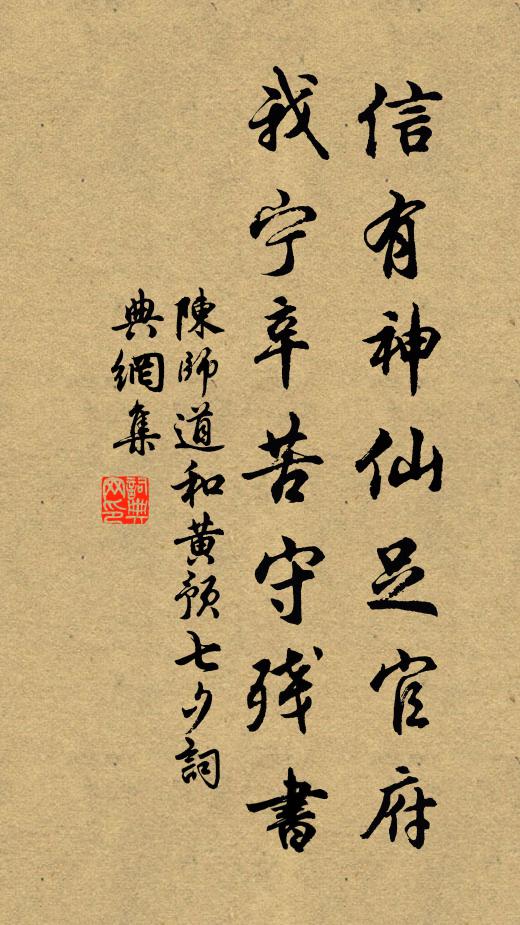 信有神仙足官府
我宁辛苦守残書
陳師道和黄預七夕詞
典網集
詞典网印